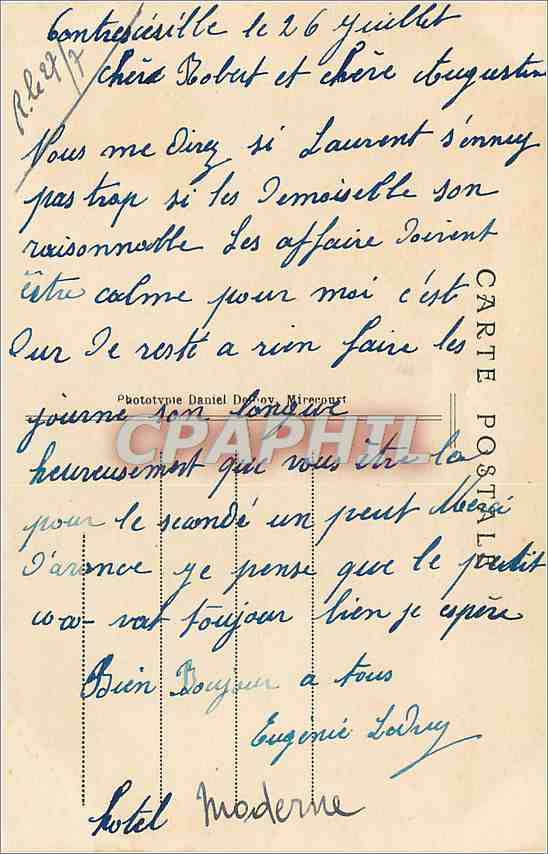 Contrexéville le 26 Juillet
R. le 27/7
Chère Robert et chère Augustine
Vous me direz si Laurent s'ennuy
pas trop si les demoiselle son
raisonnable les affaire doivent
être calme pour moi c'est
dur de resté a rien faire les
Phototypie Daniel Mirecourt
journé son longue
CPAPHIL
heureusement que vous être la
pour le secondé un peut Merci
d'avance je pense que le petit
va toujour bien je espère
Bien Boujour a tous
Eugénie
hotel Moderne
CARTE POSTALE